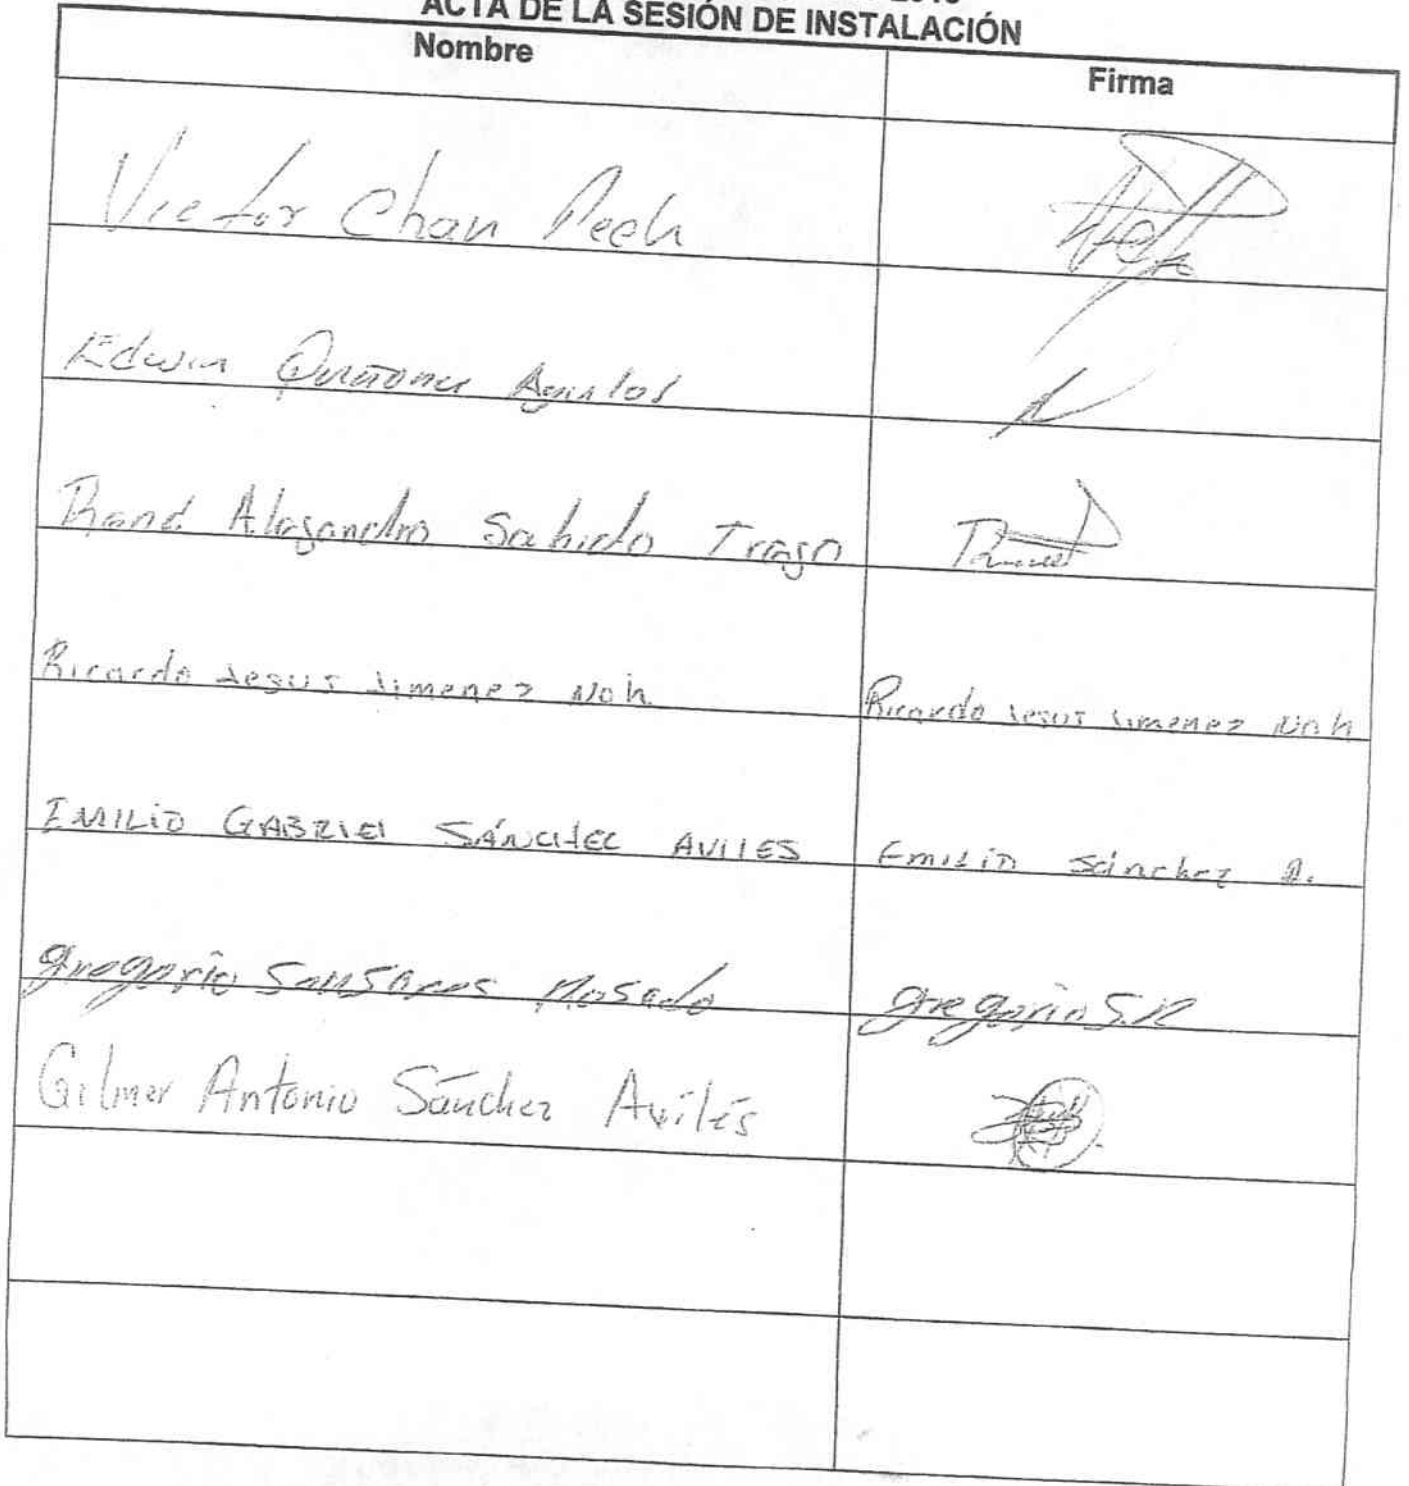 ACTA DE LA SESIÓN DE INSTALACIÓN
Nombre Firma
Victor Chan Pech
Edwin Quiñones
Alejandro Sabido
Ricardo Jesus Jimenez Noh Ricardo Jesus Jimenez Noh
EMILIO GABRIEL SÁNCHEZ AVILES Emilio Sánchez A.
Gregorio Rosado Gregorio S.R
Gilmer Antonio Sánchez Avilés